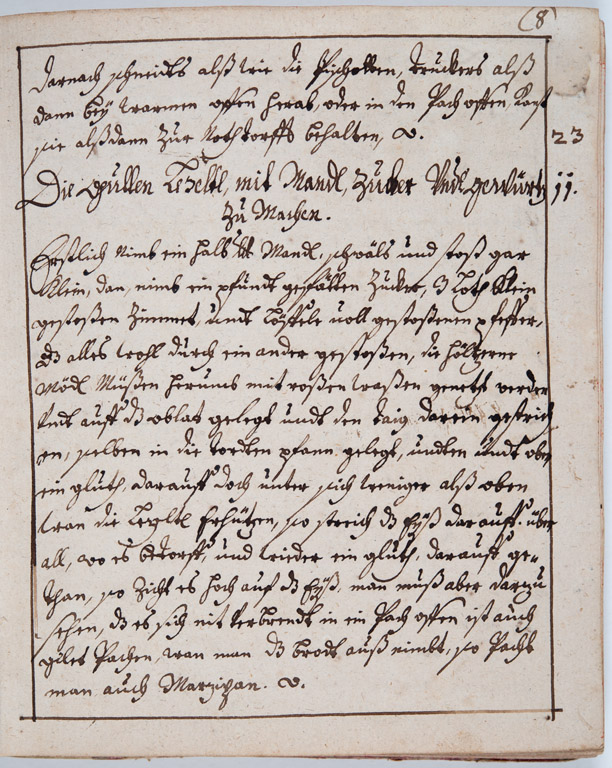 (8
darnach schneidts alß wie die Fischolben, druckers alß
dann bey warmen offen herab, oder in den Pach offen, kanst
sie alßdann zur Nothdorfft behalten, &.
23
Die gutten Lezeltl, mit Mandl, Zucker Undt gewürtz 11.
Zu Machen.
Erstlich Nimb ein halb lb Mandl, schwäls und stoß gar
Klein, dan, nimb ein pfundt gefätten Zucker, 3 Loth Klein
gestoßen Zimmet, undt Löffele voll gestoßenen pfeffer,
dz alles wohl durch ein ander gestoßen, die höltzene
Mödl Müßen herumb mit roßen waßen genetzt werden
Undt auff dz oblat gelegt undt den taig darein gestrich
en, selben in die tordten pfann gelegt, undten undt oben
ein gluth, darauff doch unter sich weniger alß oben
wan die Lezltl Erhützen, so streich dz Eyß darauff über
all, wo es bedorfft, und wieder ein gluth, darauff ge-
than, so Zicht es hoch auf dz Eyß, man muß aber darzu
sehen, dz es sich nit Verbrendt in ein Pach offen ist auch
guets Pachen, wan man dz brodt auß nimbt, so Pacht
man auch Marzipan. &.